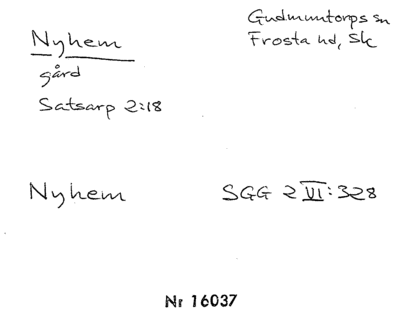 Nyhem
gård
Satsarp 2:18
Gudmuntorps sn
Frosta hd, Sk
Nyhem SGG 2 VI:328
Nr 16037